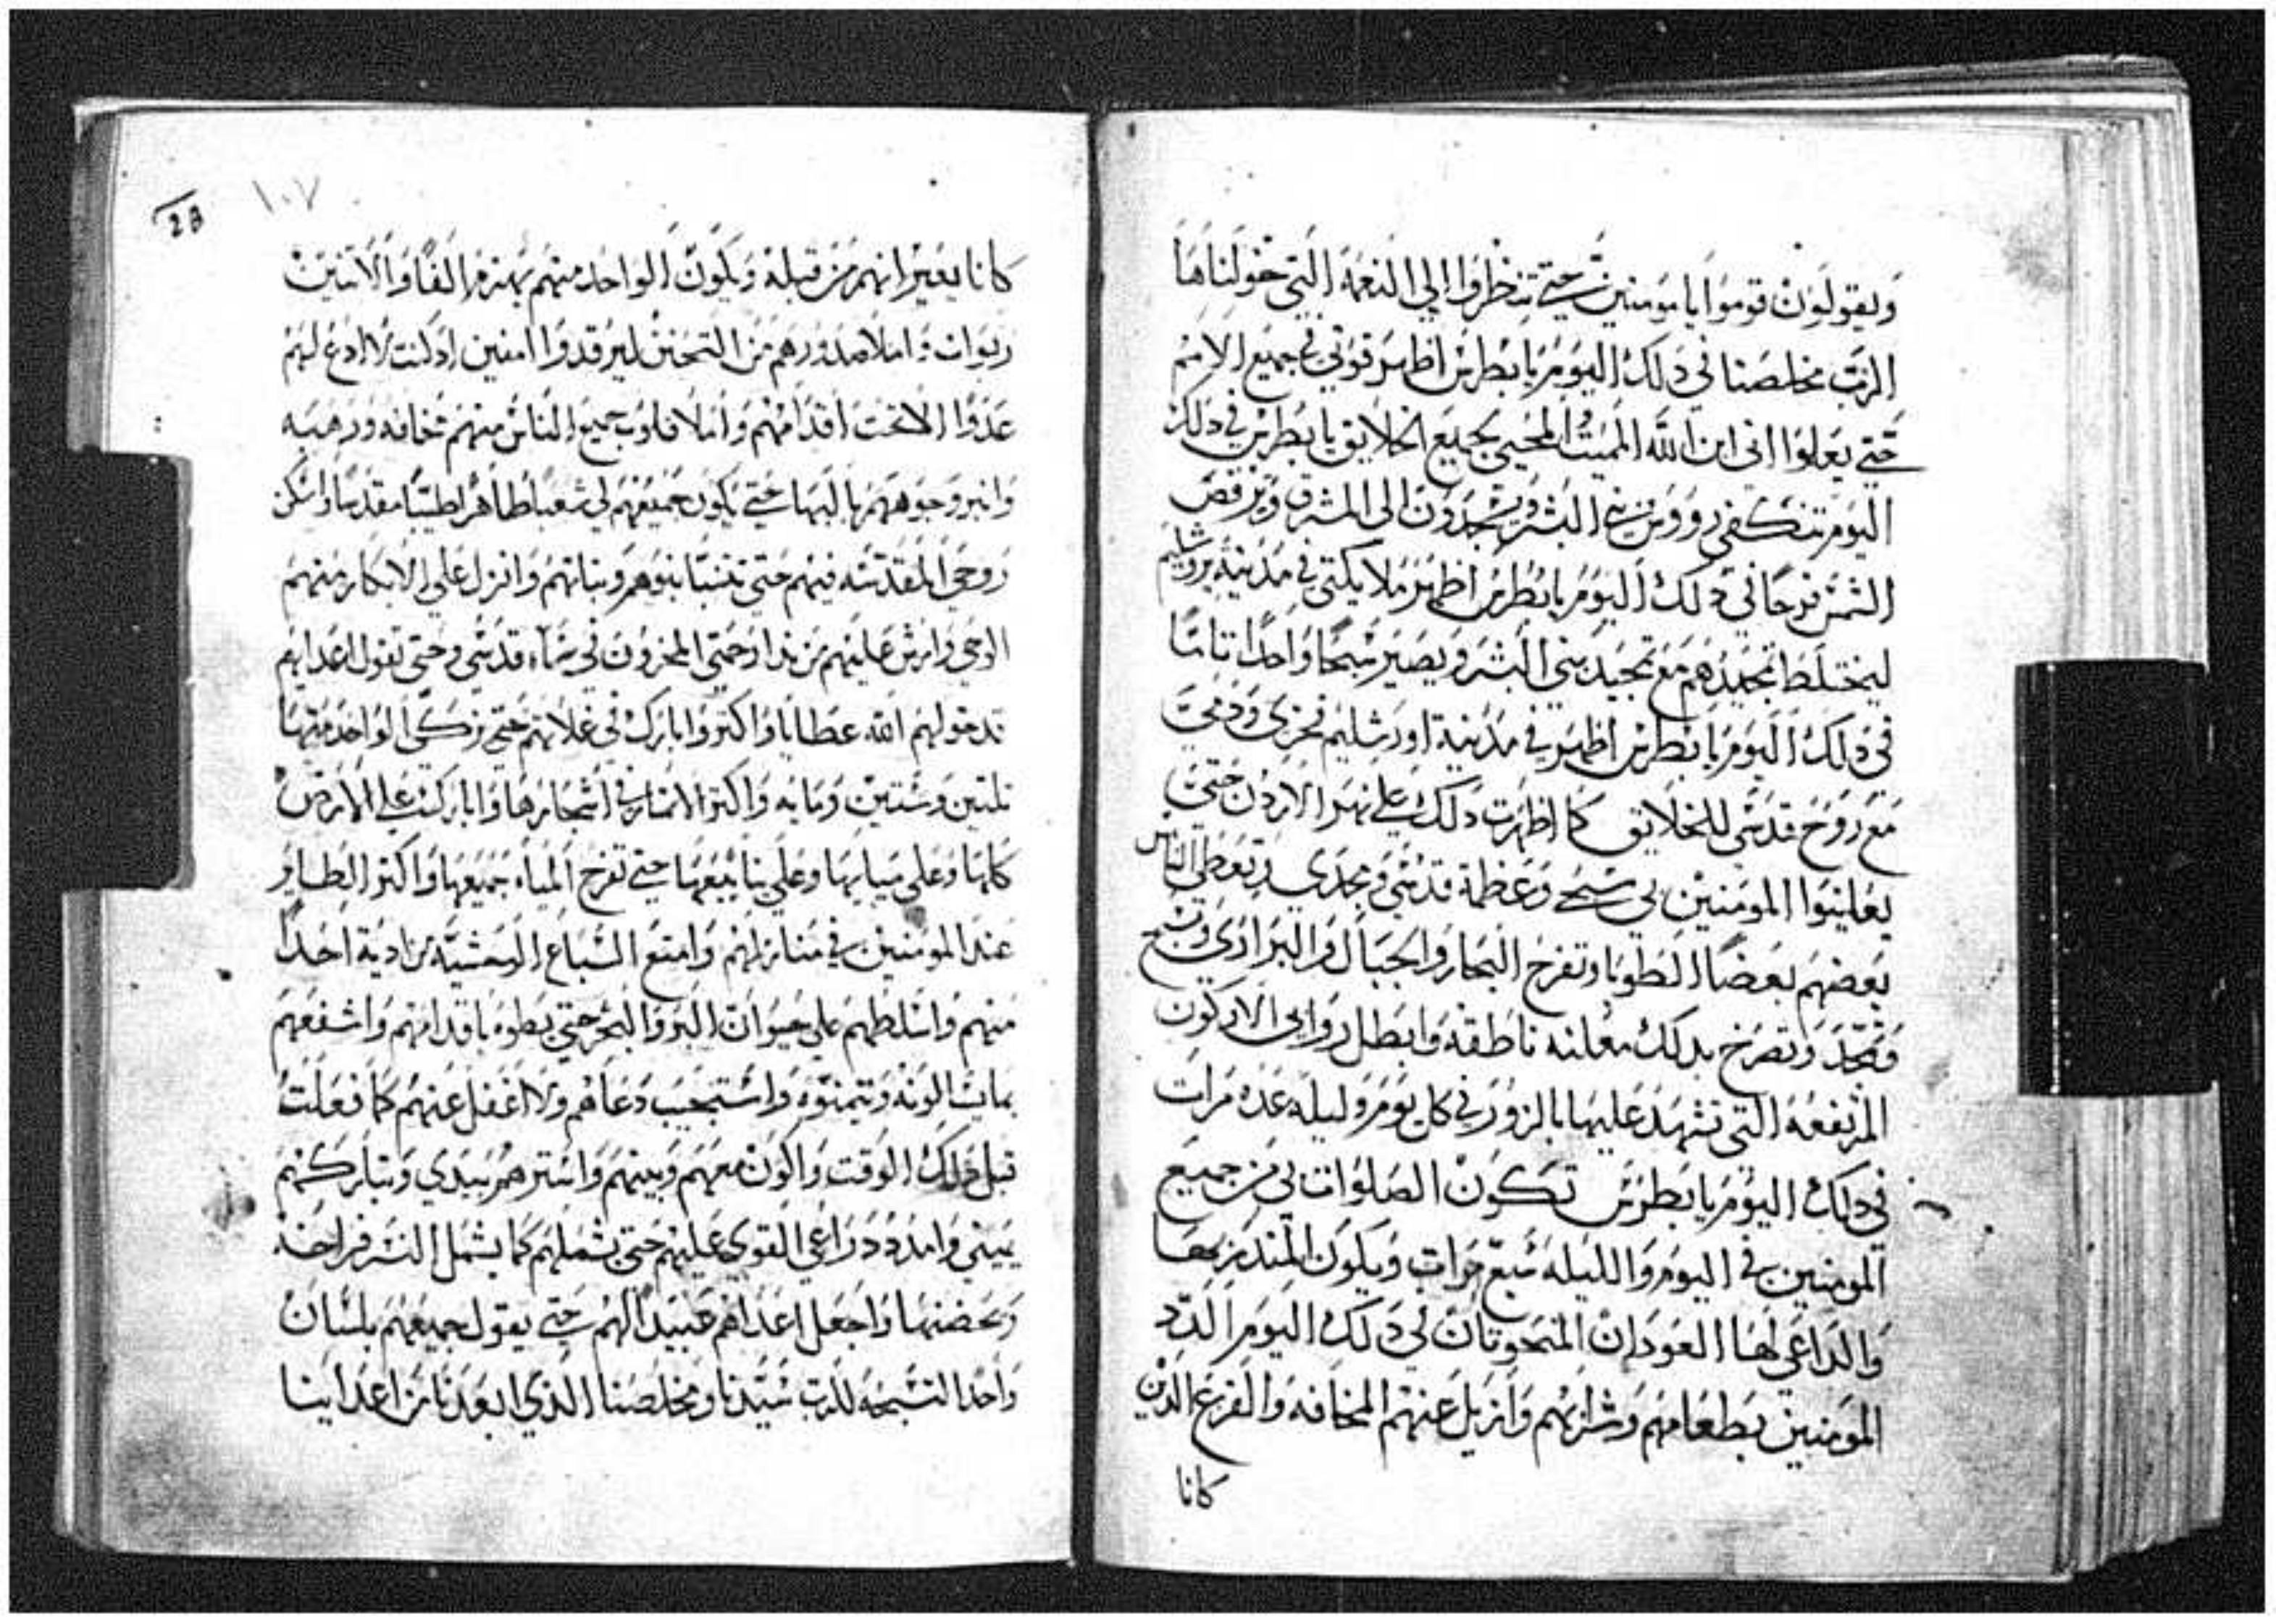 ويقولون قوموا يا مومنين حتي تنظروا الي النعمة التي خولناها
الرب مخلصنا في ذلك اليوم يا بطرس اظهر قوتي في جميع الامم
حتي يعلوا اني ابن الله المميت المحيي لجميع الخلايق يا بطرس في ذلك
اليوم تنكفي رووس بني البشر ويسجدون الى المشرق وترقص
الشمس فرحا في ذلك اليوم يا بطرس اظهر ملايكتي في مدينة يروشليم
ليختلط تمجيدهم مع تمجيد بني البشر ويصير سبحا واحدا تاما
في ذلك اليوم يا بطرس اظهر في مدينة اورشليم فخري ودمي
مع روح قدسي للخلايق كما اظهرت ذلك علي نهر الاردن حتي
يعاينوا المومنين بي سبحي وعظمة قدسي ومجدي ويعطي الناس
بعضهم بعضا الطوبا وتفرح البحار والجبال والبراري وتسبح
وتمجد وتصرخ بذلك معلنه ناطقه وابطل روابي الاركون
المرتفعه التي تشهد عليها بالزور في كل يوم وليله عده مرات
في ذلك اليوم يا بطرس تكون الصلوات لي من جميع
المومنين في اليوم والليله سبع مرات ويكون المنذر بها
والداعي لها العودان المنحوتان لي ذلك اليوم الدد
المومنين بطعامهم وشرابهم وازيل عنهم المخافه والفزع الذين
كانا
١٠٧
28
كانا يعتيرانهم من قبله ويكون الواحد منهم يهزم الفا والاثنين
ربوات واملا صدورهم من التحنن ليرقدوا امنين اذ لست لا ادع لهم
عدوا الا تحت اقدامهم واملا قلوب جميع الناس منهم مخافه ورهبه
وانير وجوههم بالبها حتي يكون جميعهم لي شعبا طاهرا طيبا مقدسا واسكن
روحي المقدسه فيهم حتي تتنبا بنوهم وبناتهم وانزل علي الابكار منهم
الوحي وارش عليهم من ندا رحمتي المخزون في سماء قدسي وحتي تقول اعدايهم
قد خولهم الله عطايا واكثر وابارك في غلاتهم حتي تزكي الواحد منها
ثلثين وستين ومايه واكثر الاثمار في اشجارها وابارك علي الارض
كلها وعلي مياهها وعلي ينابيعها حتي تفرح المياه جميعها واكثر الطاير
عند المومنين في منازلهم وامنع السباع الوحشيه من اذية احدا
منهم واسلطهم علي حيوان البر والبحر حتي يطوه باقدامهم واشفعهم
بما يسالونه ويتمنوه واستجيب دعاهم ولا اغفل عنهم كما فعلت
قبل ذلك الوقت واكون معهم وبينهم واسترهم بيدي وتباركهم
يميني وامدد دراعي القوي عليهم حتي تشملهم كما يشمل النسر فراخه
ويحضنها واجعل اعداهم عبيدا لهم حتي يقول جميعهم بلسان
واحد التسبحه للرب سيدنا ومخلصنا الذي ابعدنا من اعداينا